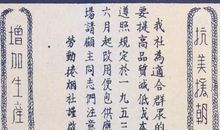 抗美援朝
我社為適合群眾的
要提高品質減低成本
遵照規定於一九五
六月起改用便包供應
場請顧主同志們注意
勞動捲烟社謹啟
增加生産